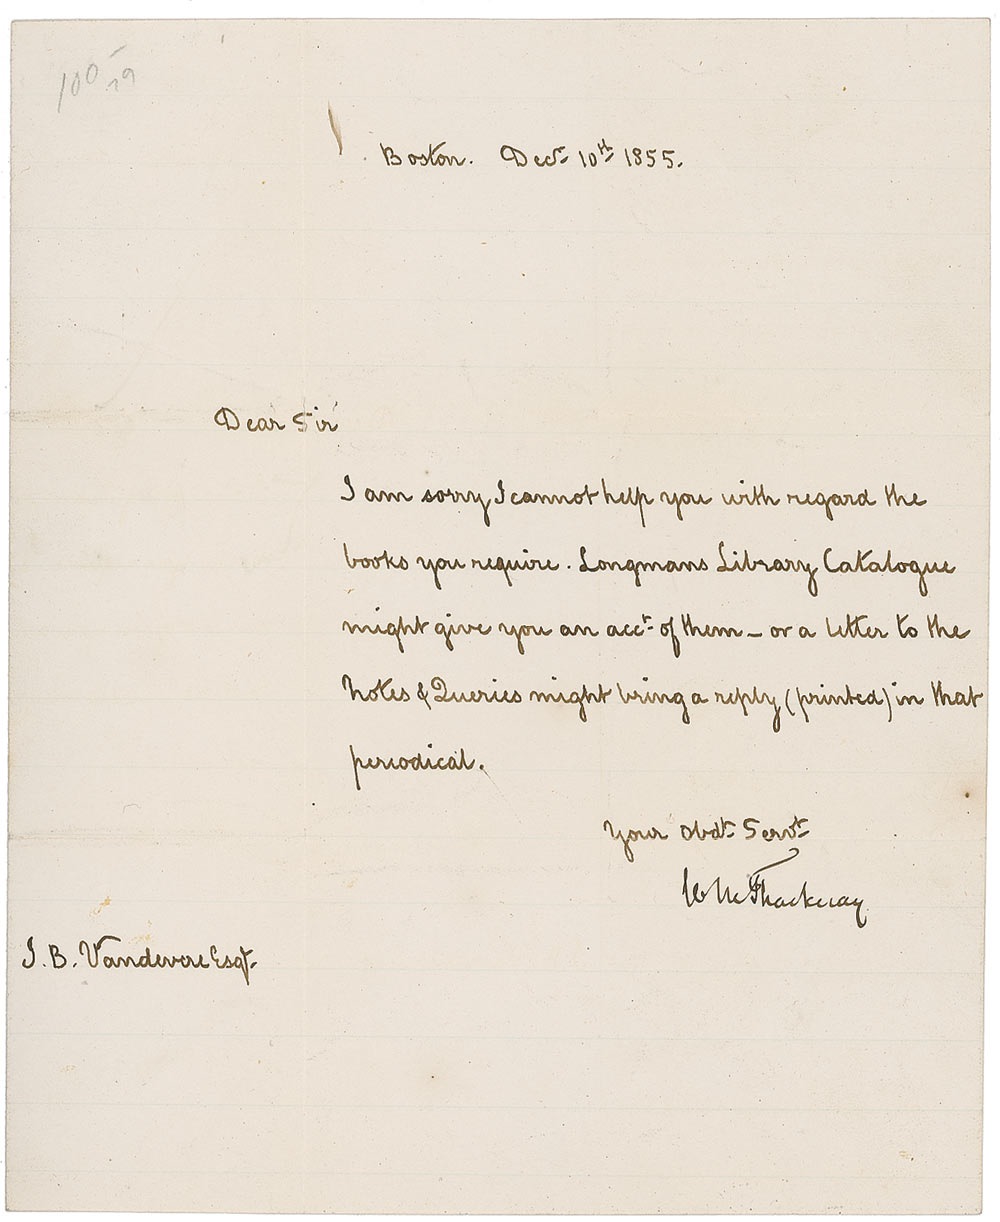 100 19
Boston. Decr 10th 1855.
Dear Sir
I am sorry I cannot help you with regard the
books you require. Longmans Library Catalogue
might give you an acct. of them – or a letter to the
Notes & Queries might bring a reply (printed) in that
periodical.
Your obdt. Servt.
W M Thackeray
J. B. Vandevere Esqr.